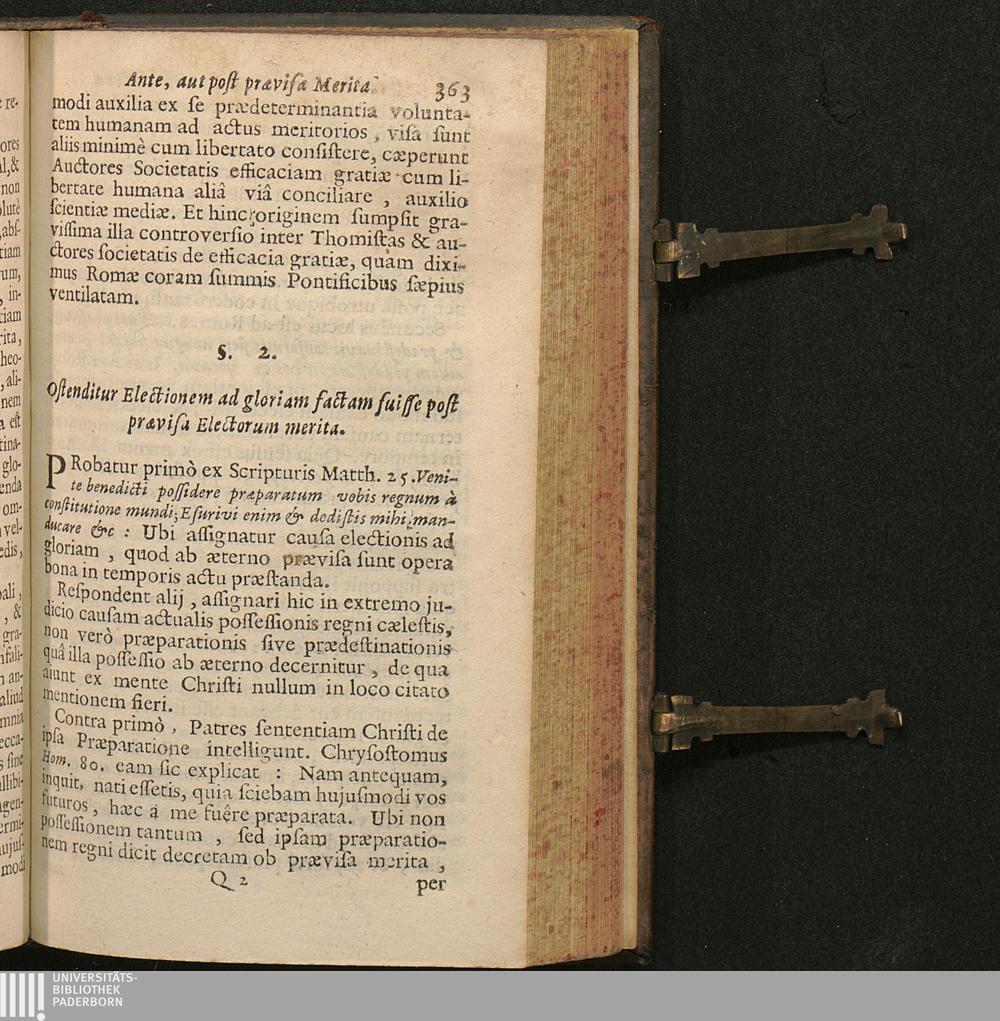 Ante, aut post prævisa Merita. 363
modi auxilia ex se prædeterminantia volunta-
tem humanam ad actus meritorios, visa sunt
aliis minimè cum libertato consistere, cæperunt
Auctores Societatis efficaciam gratiæ cum li-
bertate humana aliâ viâ conciliare, auxilio
scientiæ mediæ. Et hinc originem sumpsit gra-
vissima illa controversio inter Thomistas & au-
ctores societatis de efficacia gratiæ, quam dixi-
mus Romæ coram summis Pontificibus sæpius
ventilatam.
S. 2.
Ostenditur Electionem ad gloriam factam fuisse post
prævisa Electorum merita.
PRobatur primò ex Scripturis Matth. 25. Veni-
te benedicti possidere præparatum vobis regnum à
constitutione mundi; Esurivi enim & dedistis mihi man-
ducare &c : Ubi assignatur causa electionis ad
gloriam, quod ab æterno prævisa sunt opera
bona in temporis actu præstanda.
Respondent alij, assignari hic in extremo ju-
dicio causam actualis possessionis regni cælestis,
non verò præparationis sive prædestinationis
quâ illa possessio ab æterno decernitur, de qua
aiunt ex mente Christi nullum in loco citato
mentionem fieri.
Contra primò, Patres sententiam Christi de
ipsa Præparatione intelligunt. Chrysostomus
Hom. 80. eam sic explicat : Nam antequam,
inquit, nati essetis, quia sciebam hujusmodi vos
futuros, hæc a me fuêre præparata. Ubi non
possessionem tantum, sed ipsam præparatio-
nem regni dicit decretam ob prævisa merita,
Q 2 per
UNIVERSITÄTS-
BIBLIOTHEK
PADERBORN